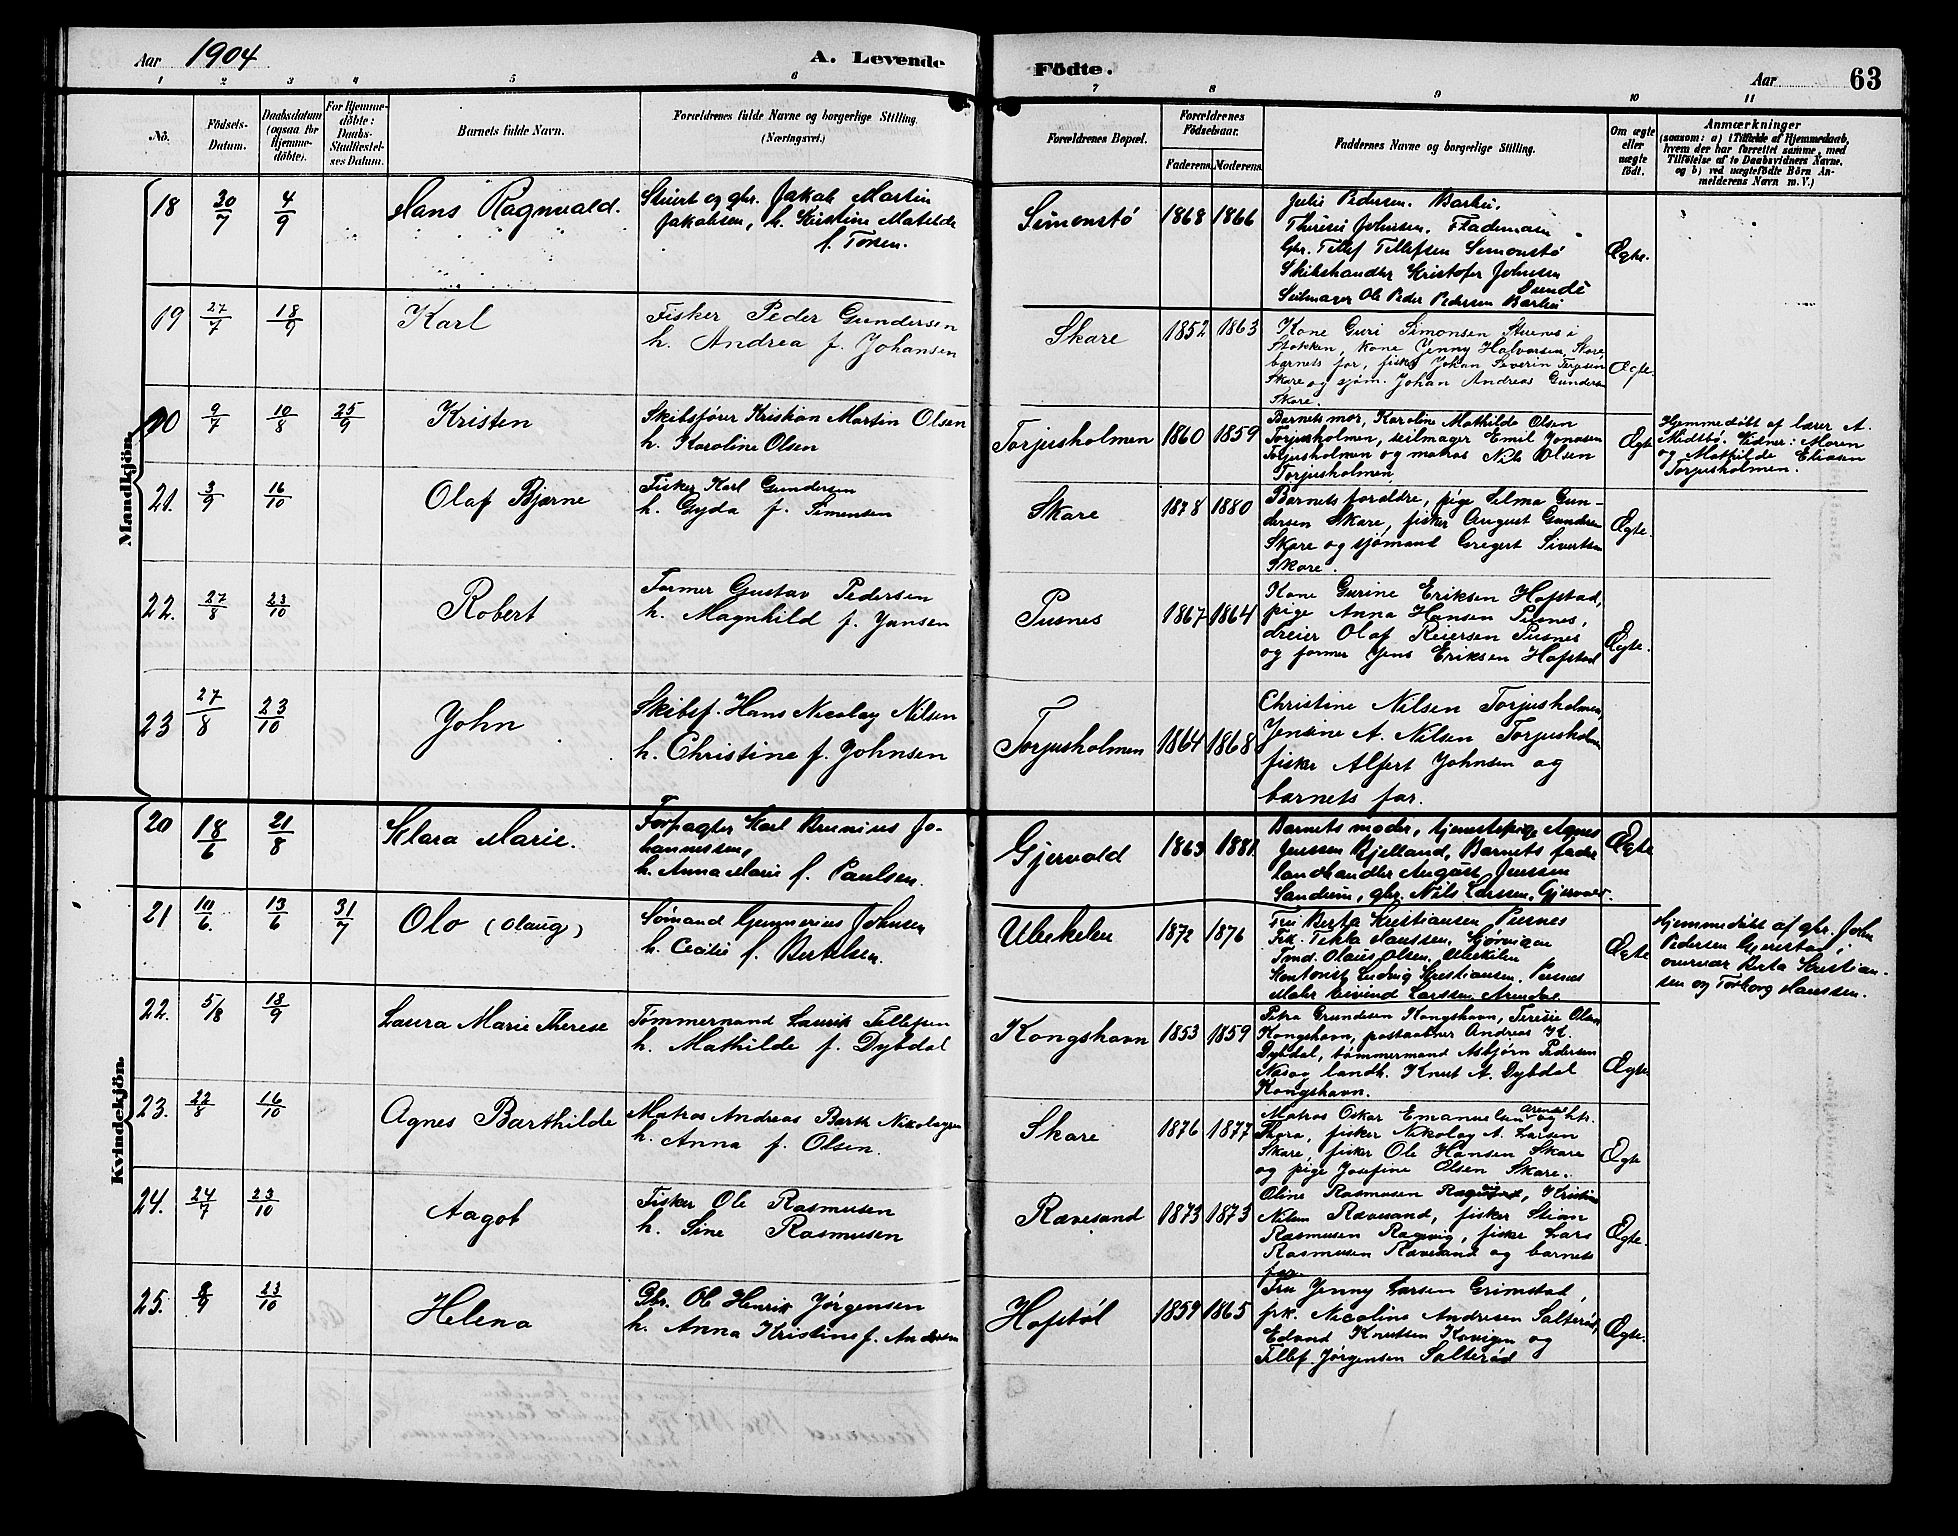 Aar 1904
A. Levende
Födte.
Aar
63
1 2 3 4 5 6 7 8 9 10 11
No.
Födsels-
Datum.
Daabsdatum
(ogsaa for
Hjemme-
döbte).
For Hjemme-
döbte:
Daabs-
Stadfæstel-
ses Datum.
Barnets fulde Navn.
Forældrenes fulde Navne og borgerlige Stilling.
(Næringsvei.)
Forældrenes Bopæl.
Forældrenes
Födselsaar.
Faderens. Moderens.
Faddernes Navne og borgerlige Stilling.
Om ægte
eller
uægte
födt.
Anmærkninger
(saasom: a) i Tilfælde af Hjemmedaab,
hvem der har forrettet samme, med
Tilföielse af to Daabsvidners Navne,
og b) ved uægtefödte Börn An-
melderens Navn m. V.)
Mandkjön.
18 30/7 4/9
Hans Ragnvald.
Stuert og gbr. Jakob Martin
Jakobsen, h. Kristine Matilde
f. Tosen.
Simonstö 1868 1866
Julie Pedersen. Barbu.
Gbr. Tellef Tellefsen Simonstö
Skibshandler Kristofer Johnsen
Seilmager Ole Peder Pedersen Barbu
Ægte.
19 27/7 18/9
Karl
Fisker Peder Gundersen
h. Andrea f. Johansen
Skare 1852 1863
Kone Guri Simonsen Stuenes i
Stokken, kone Jenny Halvorsen, Skare,
barnets far, fisker Johan Severin Terjesen
Skare og sjøm. Johan Andreas Gundersen
Skare.
Ægte.
20 9/7 10/8 25/9
Kristen
Skibsfører Kristian Martin Olsen
h. Karoline Olsen
Torjusholmen 1860 1859
Barnets mor, Karoline Mathilde Olsen
Torjusholmen, seilmager Emil Jonasen
Torjusholmen og matros Nils Olsen
Torjusholmen.
Ægte
Hjemmedöbt af lærer A.
Midtbø. Vidner: Maren
og Mathilde Eliasen
Torjusholmen.
21. 3/9 16/10
Olaf Bjarne
Fisker Karl Gundersen
h. Gyda f. Simonsen
Skare 1878 1880
Barnets forældre, pige Selma Gun-
dersen Skare, fisker August Gundersen
Skare og sjømand Gregert Sivertsen
Skare.
Ægte.
22. 27/8 23/10
Robert
Former Gustav Pedersen
h. Magnhild f. Jansen
Pusnes 1867 1864
Kone Gurine Eriksen Hofstad,
pige Anna Hansen Pusnes,
dreier Olaf Reiersen Pusnes
og former Jens Eriksen Hofstad
Ægte.
23 27/8 23/10
John
Skibsf. Hans Nicolay Nilsen
h. Christine f. Johnsen
Torjusholmen 1864 1868
Christine Nilsen Torjusholmen,
Jensine A. Nilsen Torjusholm
fisker Alfert Johnsen og
barnets far.
Kvindekjön.
20 18/6 21/8
Klara Marie.
Forpagter Karl Brunius Jo-
hannessen,
h. Anna Marie f. Paulsen.
Gjervold 1863 1881.
Barnets moder, tjenestepige Agnes
Jenssen Bjelland, Barnets fader
landhandler August Jenssen
Sandum, gbr. Nils Larssen, Gjervold.
Ægte
21 10/6. 13/6 31/7
Olo (Olaug)
Sömand Gunnerius Johnsen
h. Cecilie f. Bertelsen.
Ubekilen 1872 1876
Fru Berta Kristiansen, Pusnes
Frk. Tekla Hanssen, Sjørvigen
Tmd. Olaus Olsen, Ubekilen
Kontorist Ludvig Kristiansen, Pusnes
Maler Eivind Larssen, Arendal
Ægte
Hjemmedöbt af gbr. John
Pedersen Gjerestad i
overvær Berta Kristian-
sen og Torborg Hanssen.
22. 5/8 18/9
Laura Marie Therese
Tømmermand Laurik Tellefsen
h. Mathilde f. Dybdal
Kongshavn 1853 1859
Petra Gundersen Kongshavn, Terese Olsen
Kongshavn, postaabner Andreas K.
Dybdal, tømmermand Asbjørn Pedersen
Næs og landh. Knut A. Dybdal
Kongshavn.
Ægte
23. 22/8 16/10
Agnes Barthilde
Matros Andreas Barth Nikolaysen
h. Anna f. Olsen.
Skare 1876 1877
Matros Oskar Emanuelsen Arendal og htr.
Thora, fisker Nikolay A. Larsen
Skare, fisker Ole Hansen Skare
og pige Josefine Olsen Skare.
Ægte
24. 24/7 23/10
Aagot
Fisker Ole Rasmusen
h. Sine Rasmusen
Rævesand 1873 1873
Oline Rasmusen Ragevig, Kristine
Nilsen Rævesand, fisker Stian
Rasmusen Ragevig, fisker Lars
Rasmusen Rævesand og barnets
far.
Ægte.
25. 8/9 23/10
Helena
Gbr. Ole Henrik Jørgensen
h. Anna Kristine f. Andersen
Hofstøl 1859 1865
Fru Jenny Larsen Grimstad,
frk. Nicoline Andresen Salterød,
Edvard Knutsen Kovigen og
Tellef Jørgensen Salterød
Ægte.